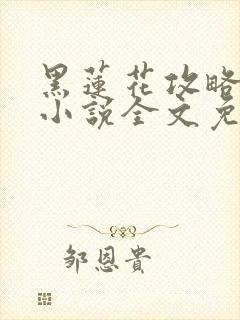 黑蓮花攻略
小說全文免
鄒恩貴